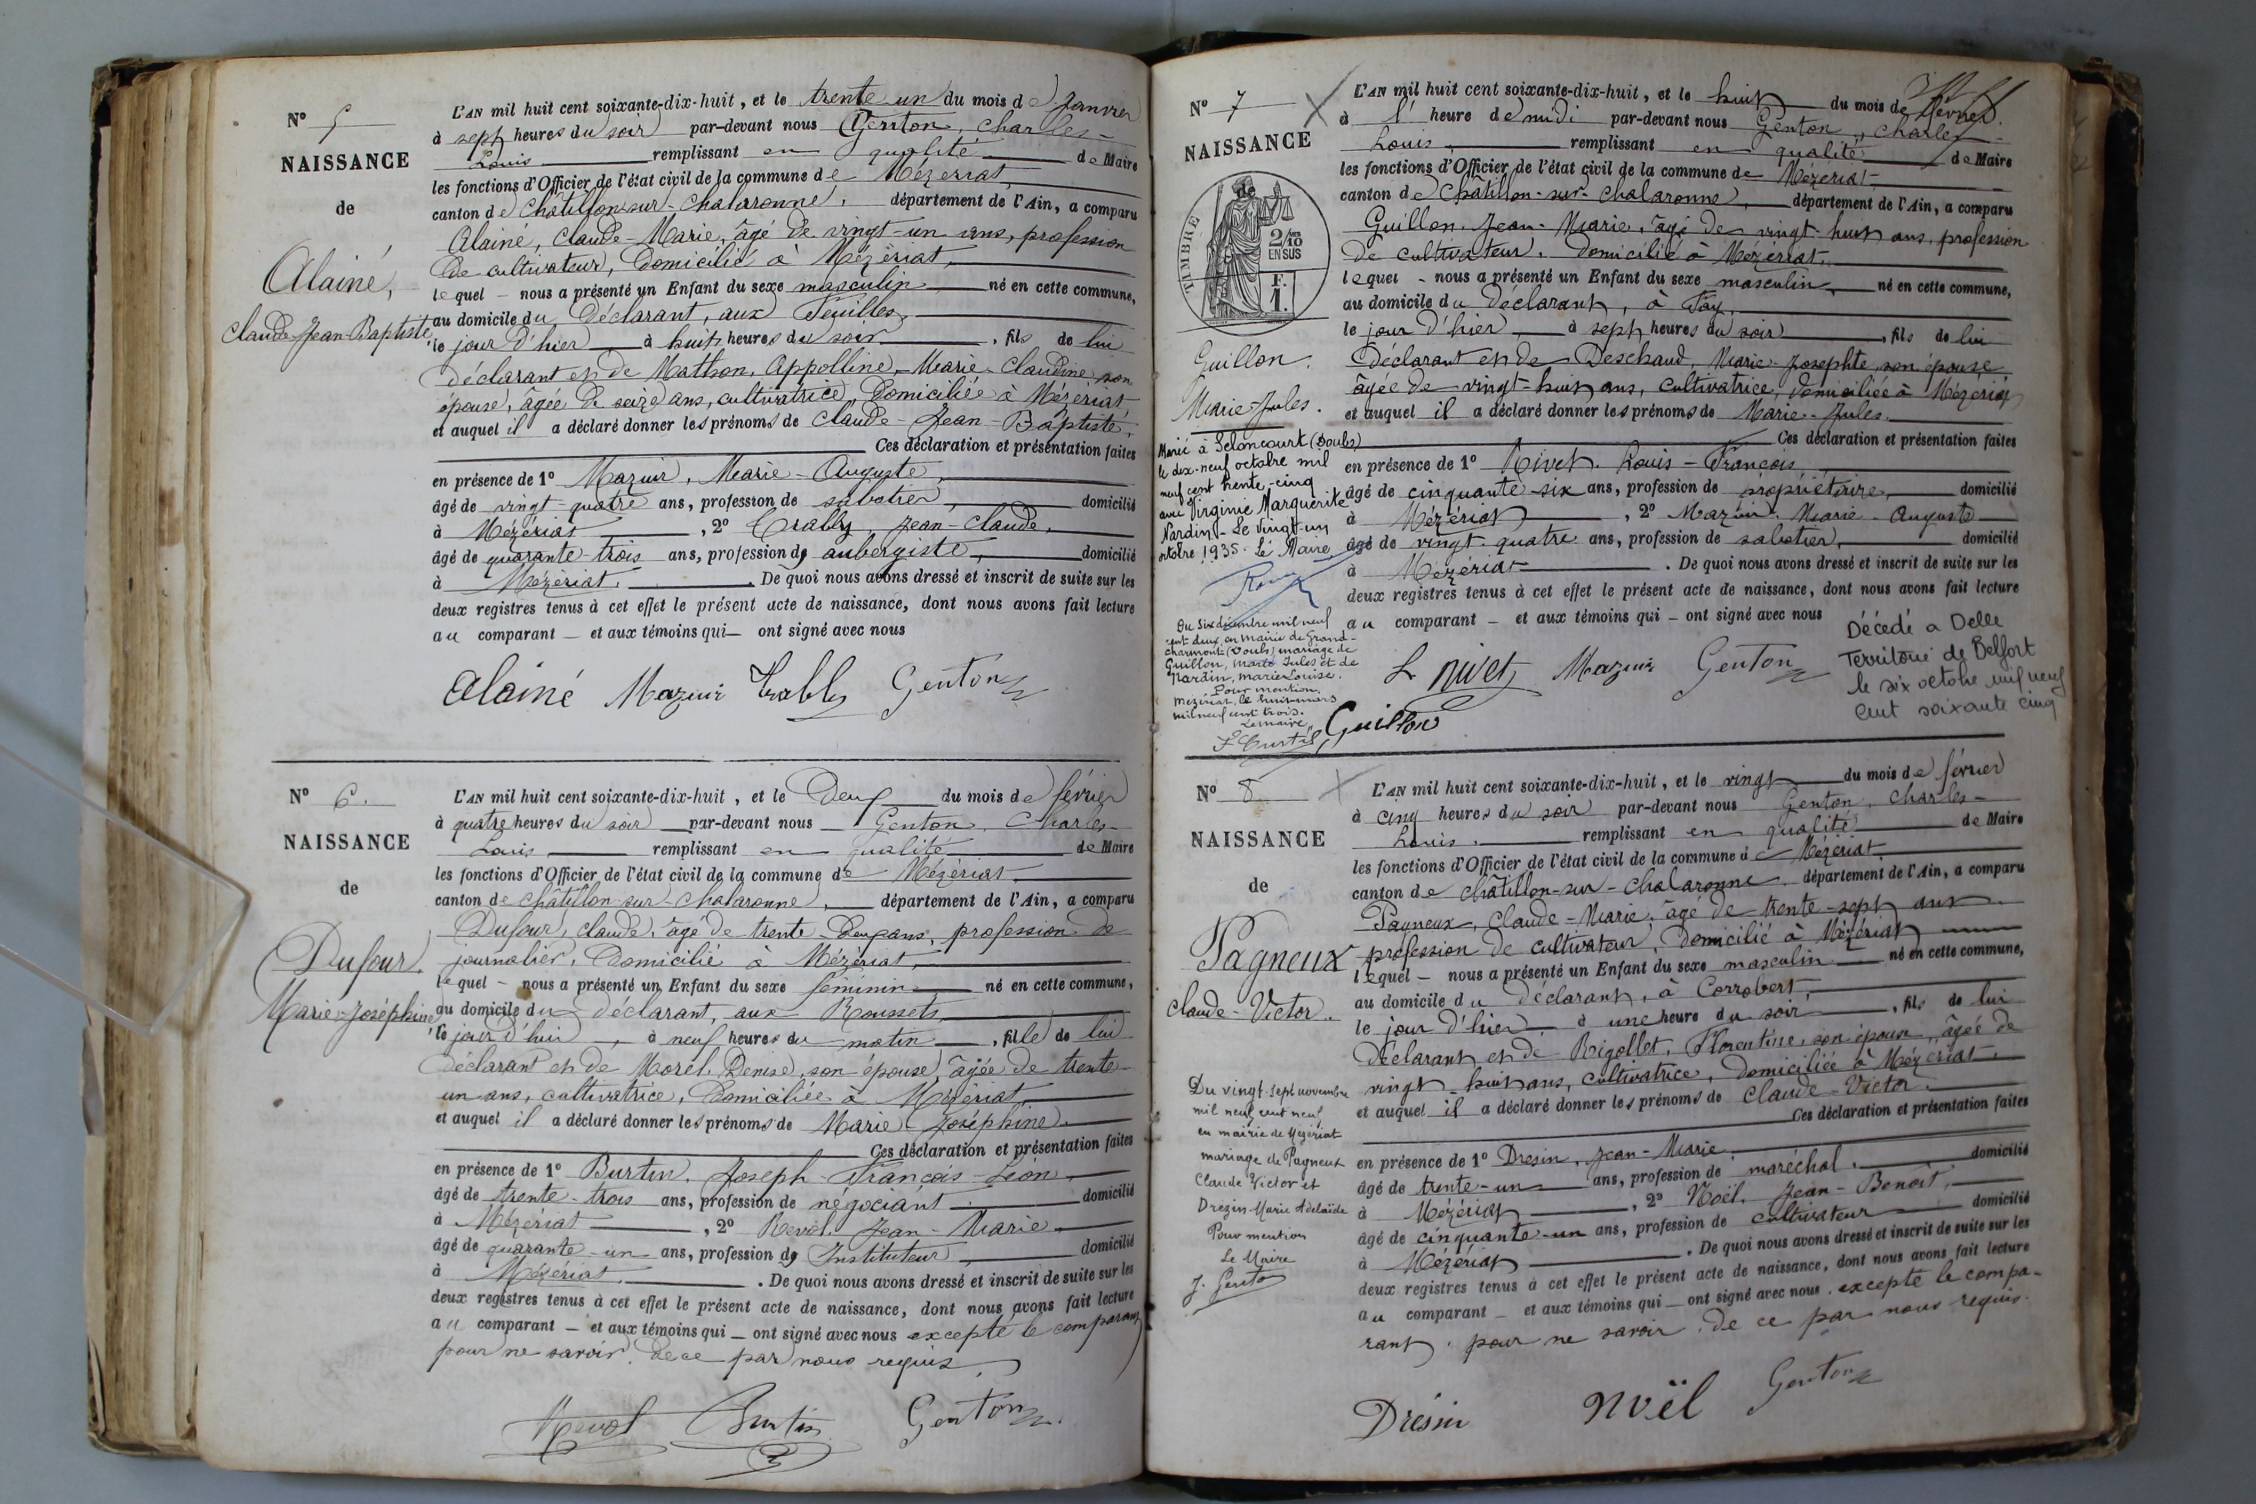 N° 5
NAISSANCE
de
Alainé,
Claude-Jean-Baptiste
L'AN mil huit cent soixante-dix-huit, et le trente un du mois de Janvier
à sept heures du soir par-devant nous Genton, Charles-
Louis remplissant en qualité de Maire
les fonctions d'Officier de l'état civil de la commune de Mézériat
canton de Châtillon-sur-Chalaronne, département de l'Ain, a comparu
Alainé, Claude-Marie, âgé de vingt-un ans, profession
de cultivateur, domicilié à Mézériat,
lequel – nous a présenté un Enfant du sexe masculin né en cette commune,
au domicile du déclarant, aux Feuilles,
le jour d'hier à huit heures du soir, fils de lui
déclarant et de Mathon, Appolline-Marie-Claudine, son
épouse, âgée de seize ans, cultivatrice, domiciliée à Mézériat
et auquel il a déclaré donner les prénoms de Claude-Jean-Baptiste.
Ces déclaration et présentation faites
en présence de 1° Mazuir, Marie-Auguste,
âgé de vingt-quatre ans, profession de sabotier, domicilié
à Mézériat, 2° Crably, Jean-Claude,
âgé de quarante-trois ans, profession de aubergiste, domicilié
à Mézériat. De quoi nous avons dressé et inscrit de suite sur les
deux registres tenus à cet effet le présent acte de naissance, dont nous avons fait lecture
au comparant – et aux témoins qui – ont signé avec nous
Alainé Mazuir Crably Genton
N° 6.
NAISSANCE
de
Dufour,
Marie-Joséphine
L'AN mil huit cent soixante-dix-huit, et le Deux du mois de février
à quatre heures du soir par-devant nous Genton, Charles-
Louis remplissant en qualité de Maire
les fonctions d'Officier de l'état civil de la commune de Mézériat
canton de Châtillon-sur-Chalaronne, département de l'Ain, a comparu
Dufour, Claude, âgé de trente-deux ans, profession de
journalier, domicilié à Mézériat,
lequel – nous a présenté un Enfant du sexe féminin né en cette commune,
au domicile du déclarant, aux Roussets,
le jour d'hui, à neuf heures du matin, fille de lui
déclarant et de Morel, Denise, son épouse, âgée de trente-
un ans, cultivatrice, domiciliée à Mézériat,
et auquel il a déclaré donner les prénoms de Marie Joséphine.
Ces déclaration et présentation faites
en présence de 1° Burtin, Joseph-François-Léon,
âgé de trente-trois ans, profession de négociant domicilié
à Mézériat, 2° Revol, Jean-Marie
âgé de quarante-un ans, profession de Instituteur, domicilié
à Mézériat. De quoi nous avons dressé et inscrit de suite sur les
deux registres tenus à cet effet le présent acte de naissance, dont nous avons fait lecture
au comparant – et aux témoins qui – ont signé avec nous excepté le comparant
pour ne savoir. de ce par nous requis
Revol Burtin Genton
N° 7
NAISSANCE
de
TIMBRE
2/10 EN SUS
F. 1.
Guillon.
Marie-Jules.
Marié à Seloncourt (Doubs)
le dix-neuf octobre mil
neuf cent trente-cinq
avec Virginie Marguerite
Nardin – Le vingt-un
octobre 1935. Le Maire
Du six décembre mil neuf
cent deux, en mairie de Grand-
charmont (Doubs) mariage de
Guillon, Marie Jules et de
Nardin, Marie Louise.
Pour mention,
Mézériat, le huit mars
mil neuf cent trois.
Le maire,
L'AN mil huit cent soixante-dix-huit, et le huit du mois de février.
à l' heure de midi par-devant nous Genton, Charles
Louis, remplissant en qualité de Maire
les fonctions d'Officier de l'état civil de la commune de Mézériat
canton de Châtillon-sur-Chalaronne, département de l'Ain, a comparu
Guillon, Jean-Marie, âgé de vingt-huit ans, profession
de cultivateur, domicilié à Mézériat,
lequel – nous a présenté un Enfant du sexe masculin, né en cette commune,
au domicile du déclarant, à Fay,
le jour d'hier à sept heures du soir, fils de lui
déclarant et de Deschaud, Marie-Josephte, son épouse,
âgée de vingt-huit ans, cultivatrice, domiciliée à Mézériat
et auquel il a déclaré donner les prénoms de Marie-Jules.
Ces déclaration et présentation faites
en présence de 1° Nivet, Louis-François,
âgé de cinquante-six ans, profession de propriétaire, domicilié
à Mézériat, 2° Mazuir, Marie-Auguste
âgé de vingt-quatre ans, profession de sabotier, domicilié
à Mézériat. De quoi nous avons dressé et inscrit de suite sur les
deux registres tenus à cet effet le présent acte de naissance, dont nous avons fait lecture
au comparant – et aux témoins qui – ont signé avec nous
L Nivet Mazuir Genton
Guillon
Décédé à Delle
Territoire de Belfort
le six octobre mil neuf
cent soixante cinq
N° 8
NAISSANCE
de
Pagneux
Claude-Victor.
Du vingt-sept novembre
mil neuf cent neuf
en mairie de Mézériat
mariage de Pagneux
Claude Victor et
Drezin Marie Adelaïde
Pour mention
Le Maire
J. Genton
L'AN mil huit cent soixante-dix-huit, et le vingt du mois de février
à cinq heures du soir par-devant nous Genton, Charles-
Louis. remplissant en qualité de Maire
les fonctions d'Officier de l'état civil de la commune de Mézériat
canton de Châtillon-sur-Chalaronne, département de l'Ain, a comparu
Pagneux, Claude-Marie, âgé de trente-sept ans
profession de cultivateur, domicilié à Mézériat
lequel – nous a présenté un Enfant du sexe masculin né en cette commune,
au domicile du déclarant, à Corrobert,
le jour d'hier, à une heure du soir, fils de lui
déclarant et de Rigollet, Florentine, son épouse, âgée de
vingt-huit ans, cultivatrice, domiciliée à Mézériat,
et auquel il a déclaré donner les prénoms de Claude-Victor.
Ces déclaration et présentation faites
en présence de 1° Dresin, Jean-Marie
âgé de trente-un ans, profession de maréchal, domicilié
à Mézériat, 2° Noël, Jean-Benoît,
âgé de cinquante-un ans, profession de cultivateur domicilié
à Mézériat. De quoi nous avons dressé et inscrit de suite sur les
deux registres tenus à cet effet le présent acte de naissance, dont nous avons fait lecture
au comparant – et aux témoins qui – ont signé avec nous, excepté le compa-
rant, pour ne savoir. de ce par nous requis.
Dresin Noël Genton